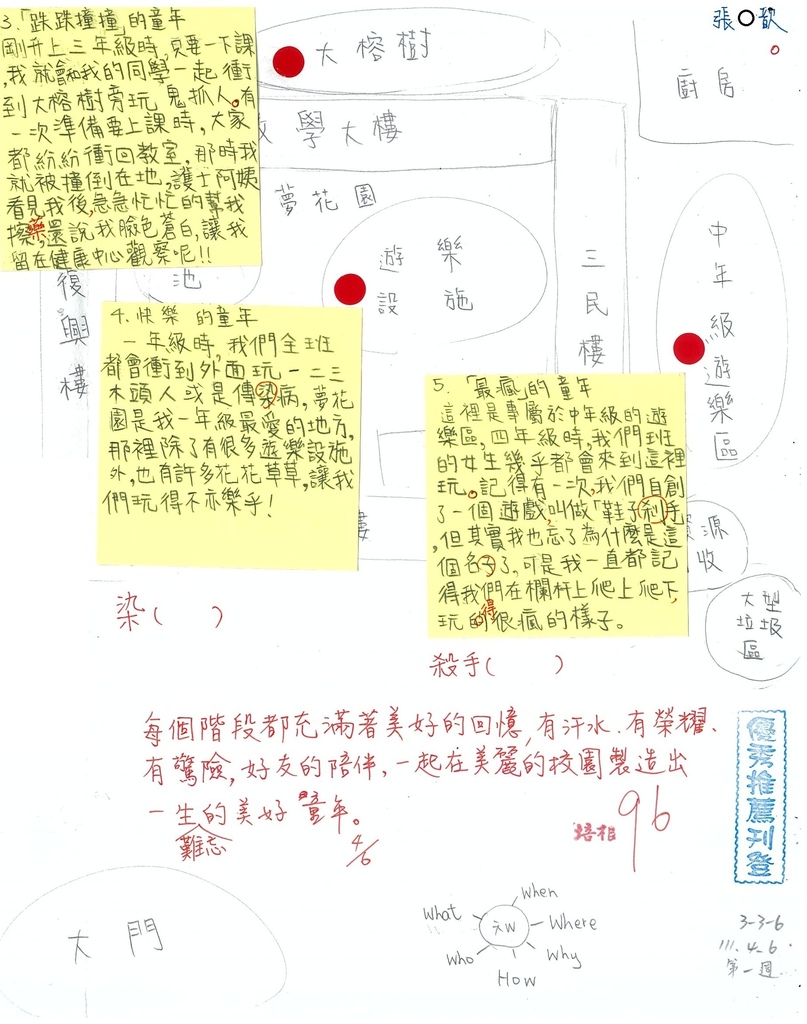 張〇歆
3.「跌跌撞撞」的童年
剛升上三年級時,只要一下課
,我就會和我的同學一起衝
到大榕樹旁玩鬼抓人。有
一次準備要上課時,大家
都紛紛衝回教室,那時我
就被撞倒在地,護士阿姨
看見我後,急急忙忙的幫我
擦藥,還說我臉色蒼白,讓我
留在健康中心觀察呢!!
大榕樹
廚房
學大樓
夢花園
遊樂
設施
池
復興樓
三民樓
中年級遊樂區
4.快樂的童年
一年級時,我們全班
都會衝到外面玩一二三
木頭人或是傳染病,夢花
園是我一年級最愛的地方,
那裡除了有很多遊樂設施
外,也有許多花花草草,讓我
們玩得不亦樂乎!
5.「最瘋」的童年
這裡是專屬於中年級的遊
樂區,四年級時,我們班
的女生幾乎都會來到這裡
玩。記得有一次,我們自創
了一個遊戲,叫做「鞋子剎手
,但其實我也忘了為什麼是這
個名子了,可是我一直都記
得我們在欄杆上爬上爬下,
玩的得很瘋的樣子。
樓
源
收
大型
垃圾
區
染( )
殺手( )
每個階段都充滿著美好的回憶,有汗水.有榮耀、
有驚險,好友的陪伴,一起在美麗的校園製造出
一生的美好童年。
難忘
4/6
96
優秀推薦刊登
大門
What
When
Where
Why
How
Who
六W
3-3-6
111.4.6.
第一週